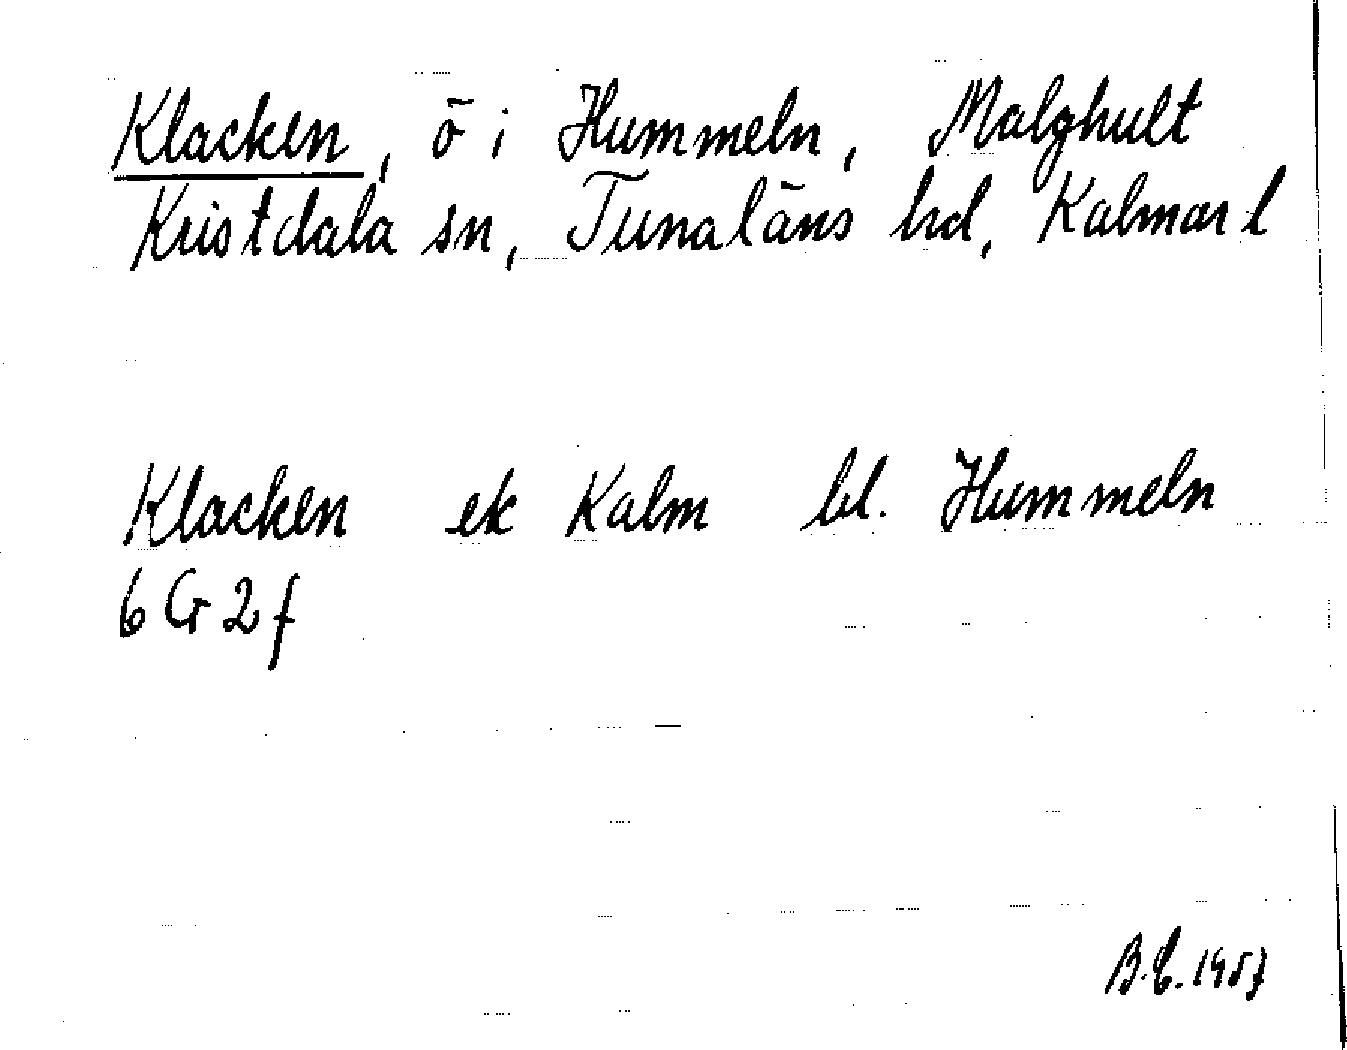 Klacken, ö i Hummeln, Malghult
Kristdala sn, Tunaläns hd, Kalmar l
Klacken ek Kalm bl. Hummeln
6 G 2 f
1957